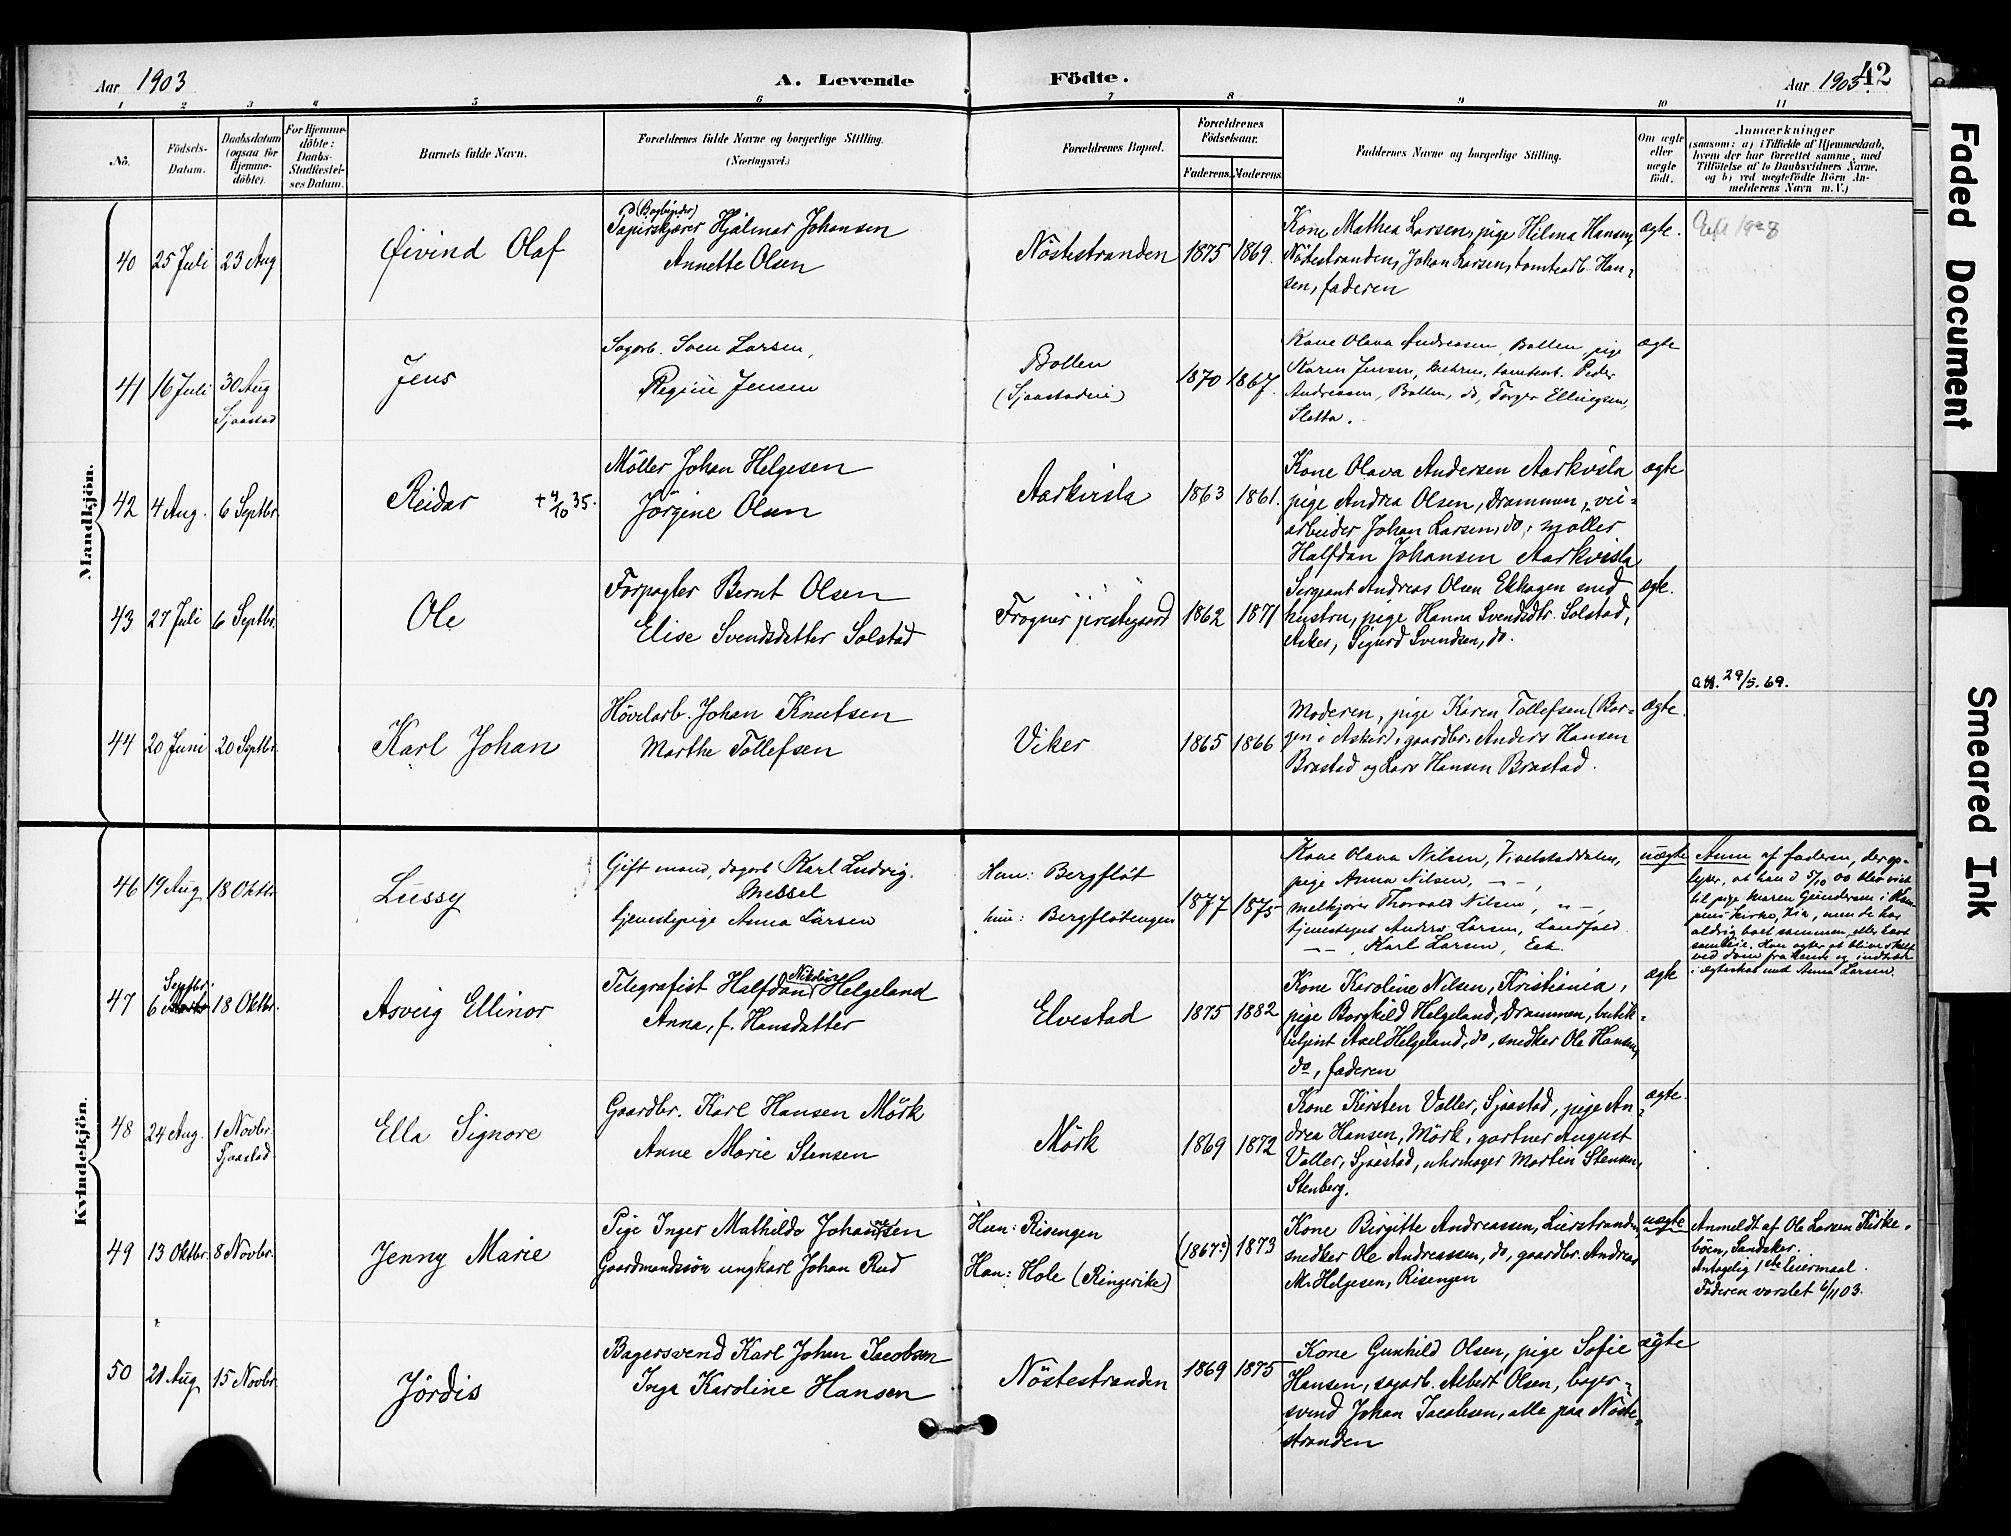 Aar 1903
A. Levende Födte.
Aar 1903.
42
1 2 3 4 5 6 7 8 9 10 11
No.
Födsels-
Datum.
Daabsdatum
(ogsaa for
Hjemme-
döbte).
For Hjemme-
döbte:
Daabs-
Stadfæstel-
ses Datum.
Barnets fulde Navn.
Forældrenes fulde Navne og borgerlige Stilling.
(Næringsvei.)
Forældrenes Bopæl.
Forældrenes
Födselsaar.
Faderens. Moderens.
Faddernes Navne og borgerlige Stilling.
Om ægte
eller
uægte
födt.
Anmærkninger
(saasom: a) i Tilfælde af Hjemmedaab,
hvem der har forrettet samme, med
Tilföielse af to Daabsvidners Navne,
og b) ved uægtefödte Börn An-
melderens Navn m. V.)
Mandkjön.
40 25 Juli 23 Aug
Øivind Olaf
(Bogbinder)
Papirskjærer Hjalmar Johansen
Annette Olsen
Nöstestranden 1875 1869.
Kone Mathea Larsen, pige Hilma Hansen,
Nöstestranden, Johan Larsen, tomtearb. Han-
sen, faderen
ægte.
41 16 Juli 30 Aug
Sjaastad
Jens
Sagarb. Sven Larsen,
Regine Jensen
Bollen
(Sjaastadeie)
1870 1867.
Kone Olava Andreasen, Bollen, pige
Karen Jensen, tomtearb. Peder
Andreasen, Bollen, do, Torger Ellingsen,
Sletta.
ægte
42 4 Aug. 6 Septbr.
Reidar + 4/10 35.
Möller Johan Helgesen
Jörgine Olsen
Aarkvisla 1863 1861.
Kone Olava Andersen Aarkvisla
pige Andrea Olsen, Drammen,
arbeider Johan Larsen, do, möller
Halfdan Johansen Aarkvisla
ægte
43 27 Juli 6 Septbr.
Ole
Forpagter Bernt Olsen
Elise Svendsdatter Solstad
Frogner prestegaard 1862 1871
Sergeant Andreas Olsen Ekhagen med
hustru, pige Hanna Svendsdtr. Solstad,
Asker, Sigurd Svendsen, do.
ægte.
att. 29/5.69.
44 20 Juni 20 Septbr.
Karl Johan
Høvlarb. Johan Knutsen
Marthe Tollefsen
Viker 1865 1866
Moderen, pige Karen Tollefsen (Bor-
gen i Asker), gaardbr. Anders Hansen
Brastad og Lars Hansen Brastad.
ægte.
Kvindekjön.
46 19 Aug 18 Oktbr.
Lussy
Gift mand, dagarb Karl Ludvig
Messel
tjenestepige Anna Larsen
Han: Bergflöt
hun: Bergflötengen
1877 1875
Kone Olava Nilsen, Vivelstaddalen,
pige Anna Nilsen, — — ,
melkjörer Thorvald Nilsen, — ,
tjenestegut Anders Larsen, Landfald
— — , Karl Larsen, Eek.
uægte
Anm af faderen, der op-
lyser, at han d. 5/10 00 blev viet
til pige Maren Gundersen i Kam-
pens kirke, Kria, men de har
aldrig boet sammen eller havt
samleie. Han agter at blive skilt
ved dom fra hende og indtræde
i ægteskab med Anna Larsen.
47 Septbr.
6 18 Oktbr.
Asveig Ellinor
Telegrafist Halfdan Nikoline Helgeland
Anna, f. Hansdatter
Elvestad 1875 1882
Kone Karoline Nilsen, Kristiania,
pige Borghild Helgeland, Drammen, butik-
betjent Axel Helgeland, do, snedker Ole Hansen,
do, faderen
ægte
48 24 Aug. 1 Novbr.
Sjaastad.
Ella Signore
Gaardbr. Karl Hansen Mörk
Anne Marie Stensen
Mörk 1869 1872
Kone Kirsten Valler, Sjaastad, pige An-
drea Hansen, Mörk, gartner August
Valler, Sjaastad, uhrmager Martin Stensen,
Stenberg.
ægte.
49 13 Oktbr. 8 Novbr.
Jenny Marie
Pige Inger Mathilde Johannesen
Gaardmandssön ungkarl Johan Rud
Hun: Risengen
Han: Hole (Ringerike)
(1867?) 1873
Kone Birgitte Andreassen, Lierstranden,
snedker Ole Andreassen, do, gaardbr. Andreas
M. Helgesen, Risengen
uægte
Anmeldt af Ole Larsen Kirke-
böen, Sandaker.
Antagelig 1ste leiermaal.
Faderen varslet 6/11 03.
50 21 Aug 15 Novbr.
Jördis
Bagersvend Karl Johan Jacobsen
Inga Karoline Hansen
Nöstestranden 1869 1875
Kone Gunhild Olsen, pige Sofie
Hansen, sagarb. Albert Olsen, bager-
svend Johan Jacobsen, alle paa Nöste-
stranden
ægte
Faded Document
Smeared Ink